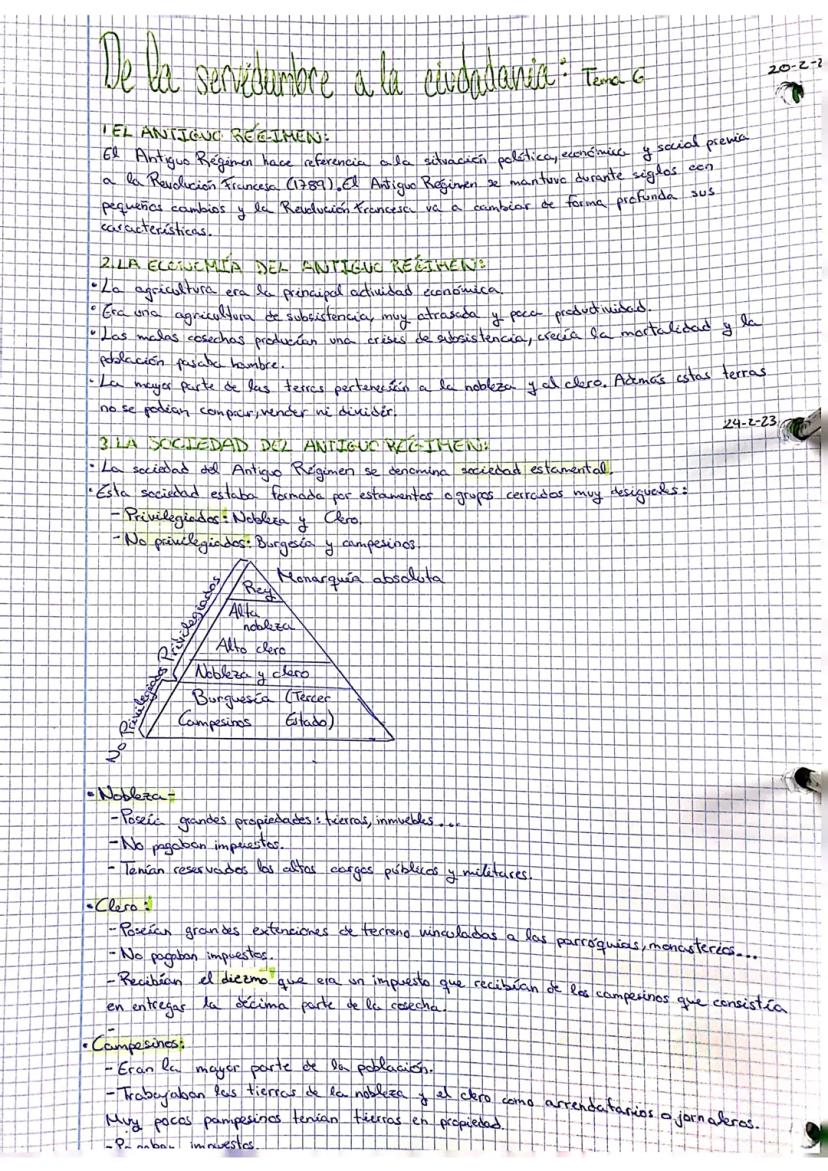 De la servidumbre a la ciudadanía: Tema 6
20-2-2
1 EL ANTIGUO RÉGIMEN:
El Antiguo Régimen hace referencia a la situación política, económica y social previa
a la Revolución Francesa (1789). El Antiguo Régimen se mantuvo durante siglos con
pequeños cambios y la Revolución Francesa va a cambiar de forma profunda sus
características.
2. LA ECONOMÍA DEL ANTIGUO RÉGIMEN:
• La agricultura era la principal actividad económica.
• Era una agricultura de subsistencia, muy atrasada y poca productividad.
• Las malas cosechas producían una crisis de subsistencia, crecía la mortalidad y la
población pasaba hambre.
• La mayor parte de las terras pertenecían a la nobleza y al clero. Además estas terras
no se podían comprar, vender ni dividir.
24-2-23
3. LA SOCIEDAD DEL ANTIGUO RÉGIMEN:
• La sociedad del Antiguo Régimen se denomina sociedad estamental.
• Esta sociedad estaba formada por estamentos o grupos cerrados muy desiguales:
- Privilegiados: Nobleza y Clero.
- No privilegiados: Burgesía y campesinos.
Monarquía absoluta
Rey
Alta
nobleza
Alto clero
Nobleza y clero
Burguesía (Tercer
Campesinos Estado)
Privilegiados
No Privilegiados
• Nobleza-
- Poseía grandes propiedades: tierras, inmuebles...
- No pagaban impuestos.
- Tenían reservados los altos cargos públicos y militares.
• Clero:
- Poseían grandes extenciones de terreno vinculadas a las parroquias, monasterios...
- No pagaban impuestos.
- Recibían el diezmo que era un impuesto que recibían de los campesinos que consistía
en entregar la décima parte de la cosecha.
-
• Campesinos:
- Eran la mayor parte de la población.
- Trabajaban las tierras de la nobleza y el clero como arrendatarios o jornaleros.
Muy pocos pampesinos tenían tierras en propiedad.
- Pagaban impuestos.